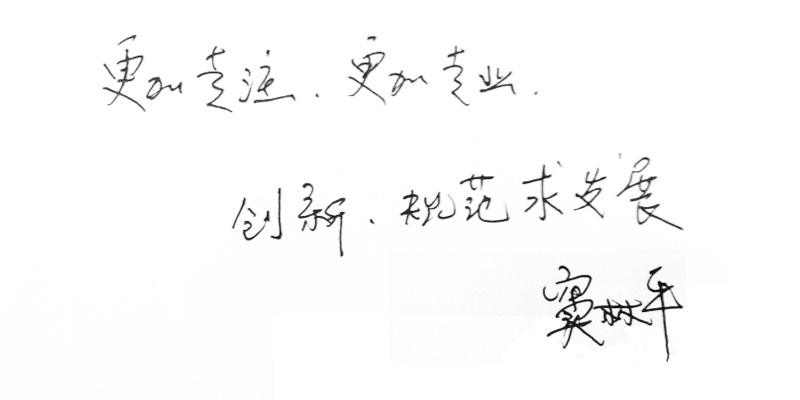 更加专注、更加专业.
创新、规范求发展
窦林平